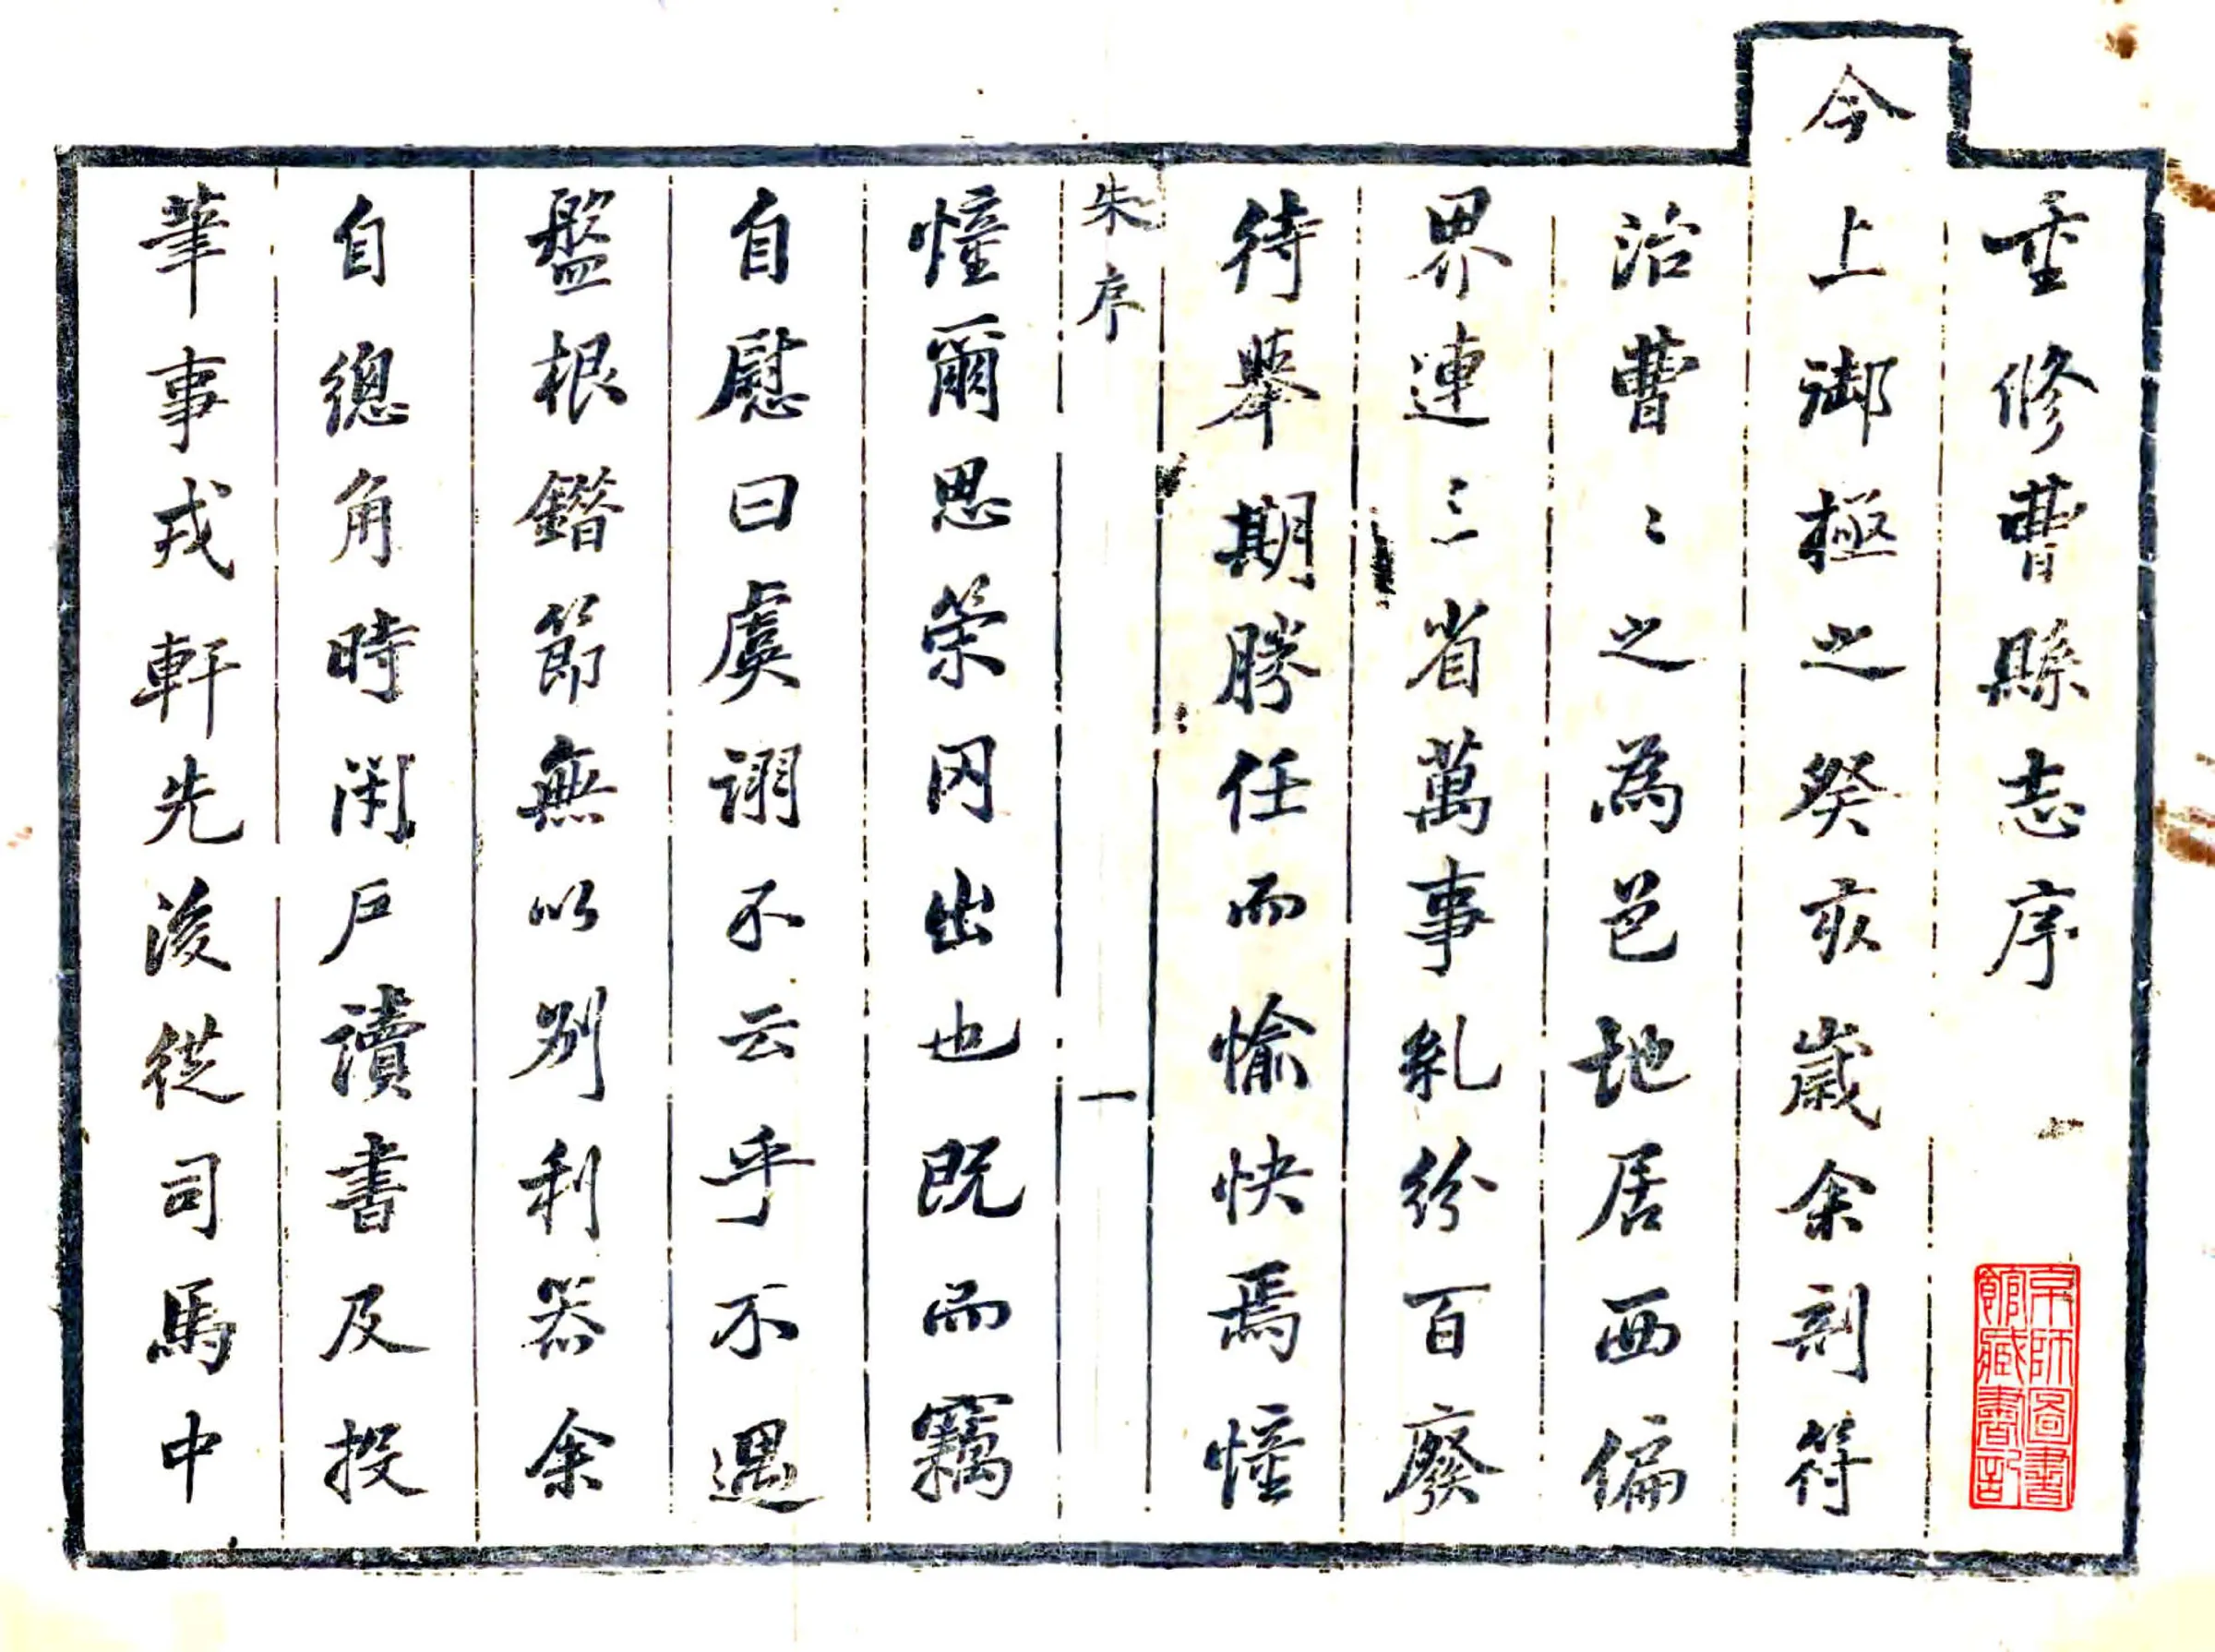 重修曹縣志序
今上御極之癸亥歲余剖符
治曹〻之為邑地居西偏
界連三省萬事糺紛百廢
待舉期勝任而愉快焉憧
朱序
一
憧爾思榮罔出也既而竊
自慰曰虞詡不云乎不遇
盤根錯節無以別利器余
自總角時閉戶讀書及投
筆事戎軒先後從司馬中
京師圖書
館藏書記